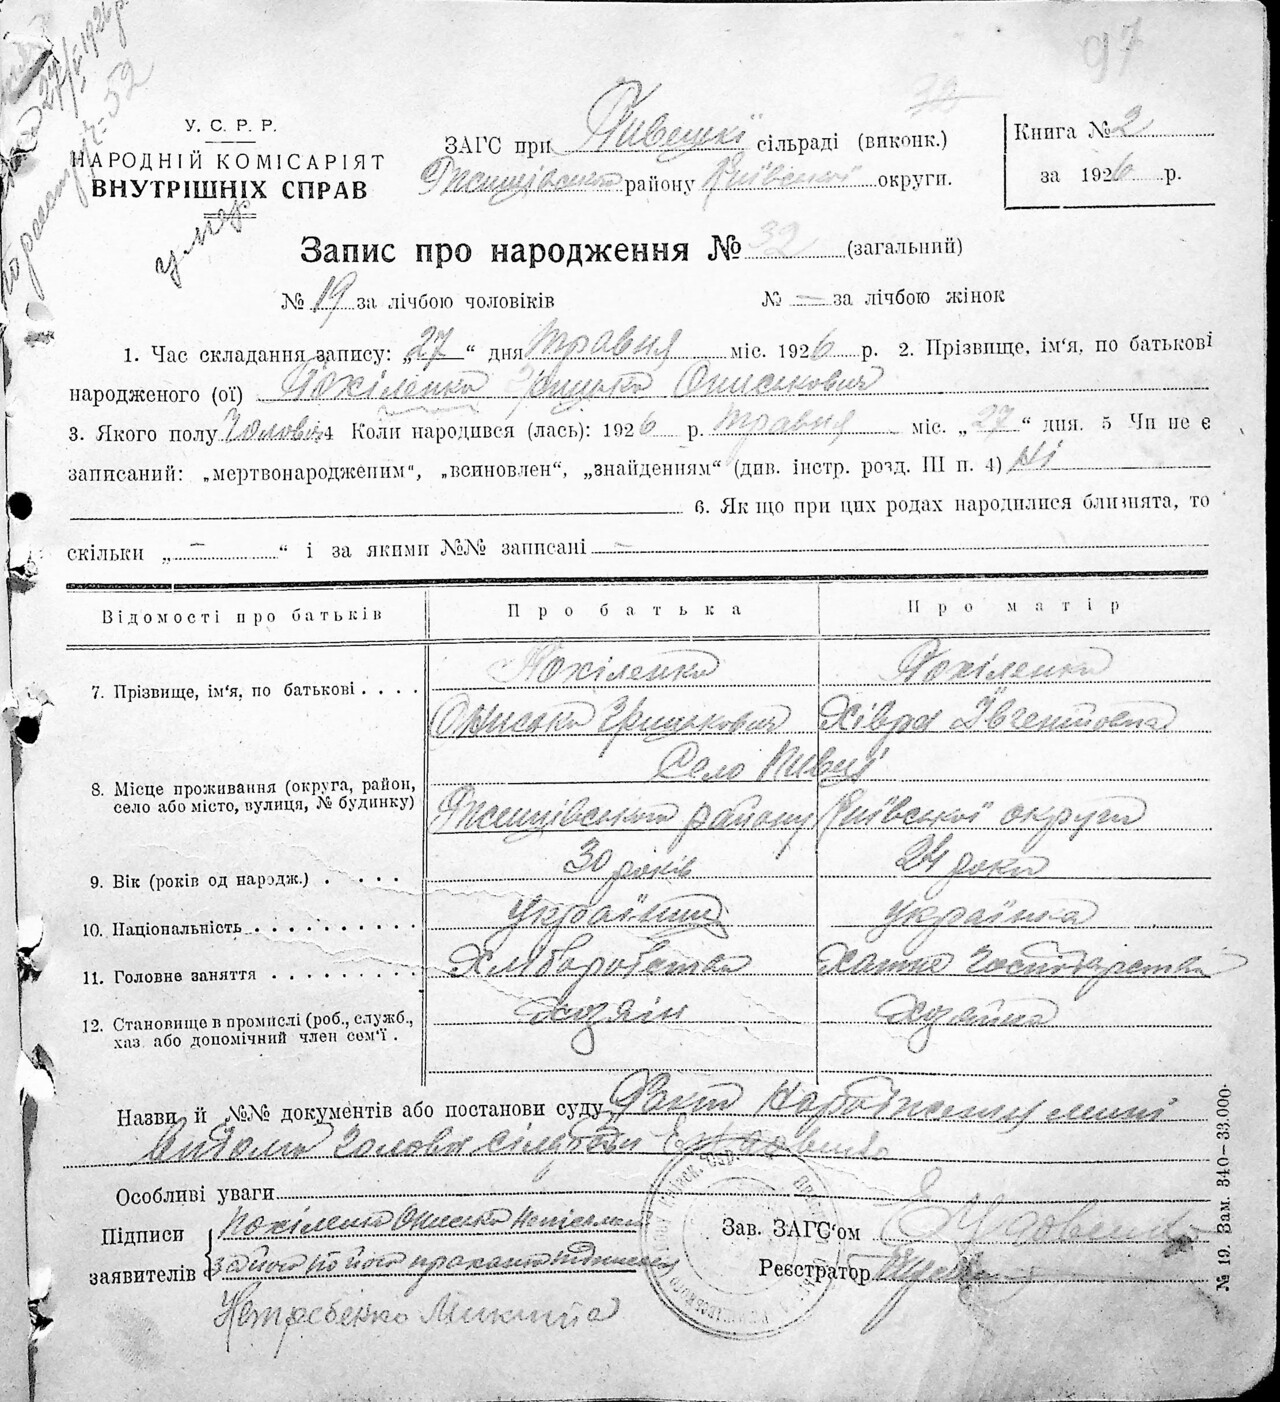 97
У. С. Р. Р.
НАРОДНІЙ КОМІСАРІЯТ
ВНУТРІШНІХ СПРАВ
умер
ЗАГС при Пивецькі сільраді (виконк.)
Ржищівського району Київської округи.
Книга № 2
за 1926 р.
Запис про народження № 32 (загальний)
№ 19 за лічбою чоловіків № — за лічбою жінок
1. Час складання запису: „27“ дня травня міс. 1926 р. 2. Прізвище, ім'я, по батькові
народженого (ої) Похіленко Грицько Ониськович
3. Якого полу Чоловіч 4 Коли народився (лась): 1926 р. травня міс. „27“ дня. 5 Чи не є
записаний: „мертвонародженим“, „всиновлен“, „знайденням“ (див. інстр. розд. III п. 4) Ні
6. Як що при цих родах народилися близнята, то
скільки „ — “ і за якими №№ записані —
Відомості про батьків Про батька Про матір
7. Прізвище, ім'я, по батькові . . . . Похіленко Похіленко
Онисько Грицькович Хівря Івгенповна
8. Місце проживання (округа, район, село або місто, вулиця, № будинку) Село Пивці
Ржищівського району Київської округи
9. Вік (років од народж.) . . . . . 30 років 24 роки
10. Національність . . . . . . . . . . українець українка
11. Головне заняття . . . . . . . . . Хліборобство Хатне господарство
12. Становище в промислі (роб., служб., хаз. або допомічний член сем'ї . Хозяін Хозяйка
Назви й №№ документів або постанови суду Факт народження мині
відомий голова сілради
Особливі уваги
Підписи заявителів
Похіленко Онисько неписьмен
за його по його проханню підписавсь
Нетребенко Микита
Зав. ЗАГС'ом Е Удовенко
Реєстратор
№ 19. Зам. 340—33.000.